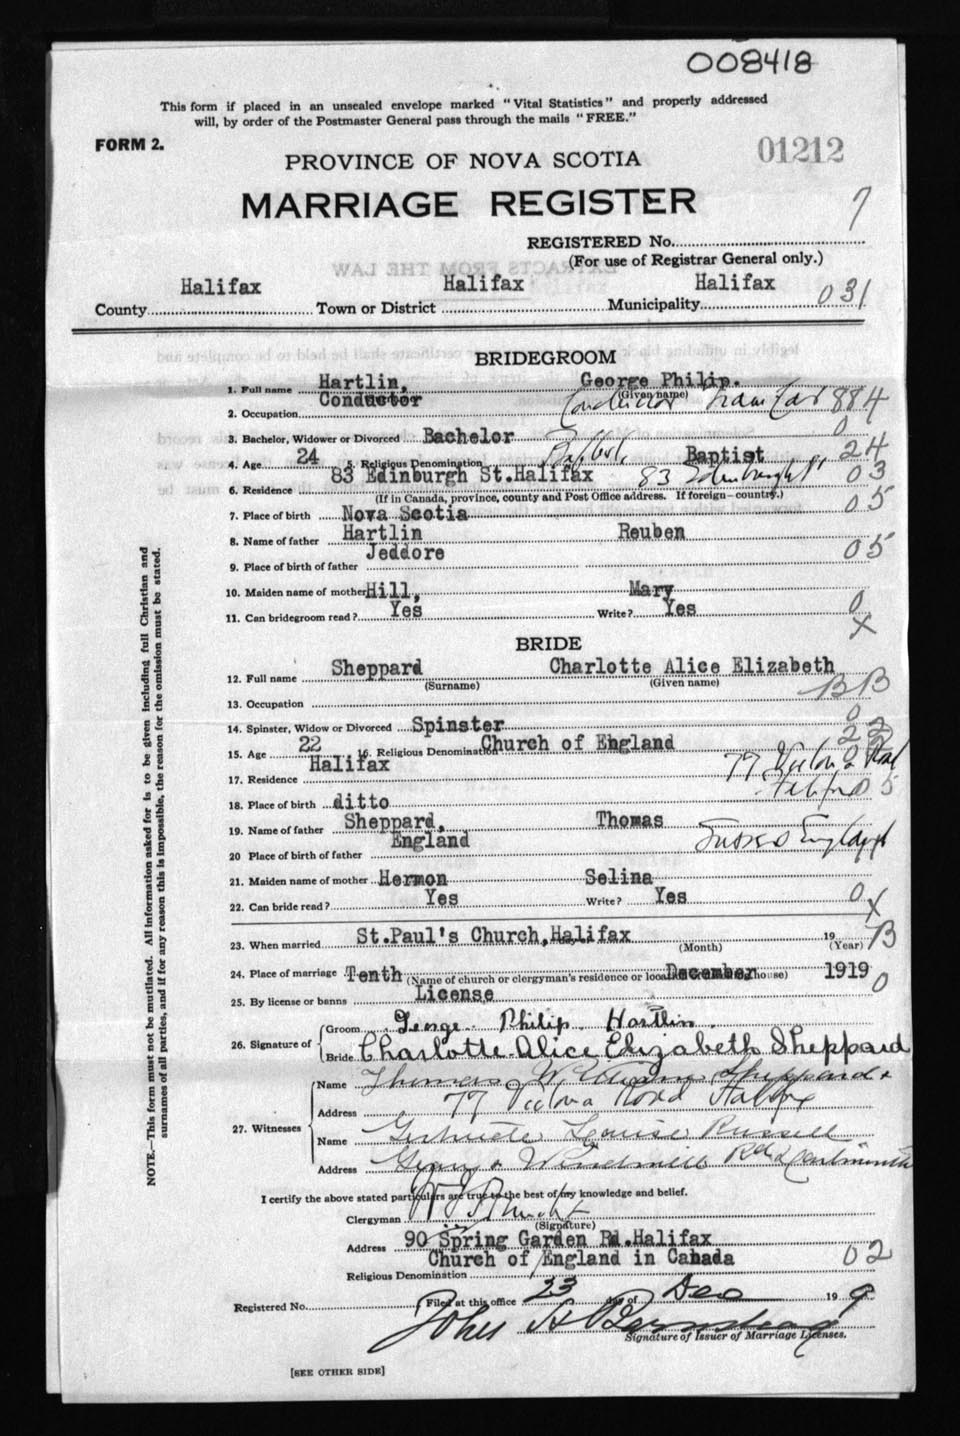 008418
This form if placed in an unsealed envelope marked "Vital Statistics" and properly addressed
will, by order of the Postmaster General pass through the mails "FREE."
FORM 2.
PROVINCE OF NOVA SCOTIA
01212
MARRIAGE REGISTER
7
REGISTERED No.
(For use of Registrar General only.)
County Halifax Town or District Halifax Municipality Halifax 031
BRIDEGROOM
1. Full name Hartlin, George Philip.
(Given name)
2. Occupation Conductor Conductor Tram Car 884
3. Bachelor, Widower or Divorced Bachelor 0
4. Age 24 5. Religious Denomination Baptist Baptist 24
6. Residence 83 Edinburgh St. Halifax 83 Edinburgh St 03
(If in Canada, province, county and Post Office address. If foreign—country.)
7. Place of birth Nova Scotia 05
8. Name of father Hartlin Reuben
9. Place of birth of father Jeddore 05
10. Maiden name of mother Hill, Mary
11. Can bridegroom read? Yes Write? Yes 0
X
BRIDE
12. Full name Sheppard Charlotte Alice Elizabeth
(Surname) (Given name)
13. Occupation BB
14. Spinster, Widow or Divorced Spinster 0
15. Age 22 16. Religious Denomination Church of England 22
17. Residence Halifax 77 Victoria Road
Halifax
18. Place of birth ditto 05
19. Name of father Sheppard, Thomas
20 Place of birth of father England England
21. Maiden name of mother Hermon Selina
22. Can bride read? Yes Write? Yes 0
X
23. When married St.Paul's Church, Halifax 19
(Month) (Year) B
24. Place of marriage Tenth December 1919
(Name of church or clergyman's residence or house)
25. By license or banns License 0
26. Signature of Groom George Philip Hartlin.
Bride Charlotte Alice Elizabeth Sheppard
27. Witnesses
Name Thomas William Sheppard
Address 77 Victoria Road Halifax
Name Gertrude Louise Russell
Address Windmill Rd Dartmouth
I certify the above stated particulars are true to the best of my knowledge and belief.
Clergyman
(Signature)
Address 90 Spring Garden Rd. Halifax
Religious Denomination Church of England in Canada 02
Registered No. Filed at this office 23 day of Dec 19 9
John H Barnstead
Signature of Issuer of Marriage Licenses.
[SEE OTHER SIDE]
NOTE.—This form must not be mutilated. All information asked for is to be given including full Christian and
surnames of all parties, and if for any reason this is impossible, the reason for the omission must be stated.